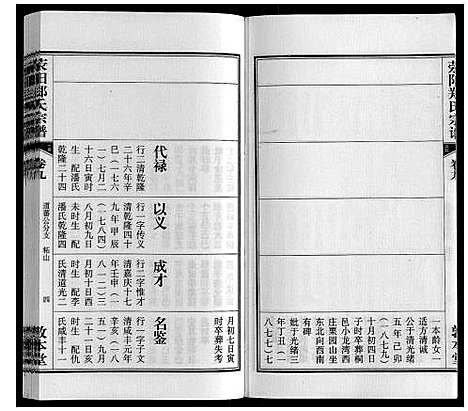 荥阳郑氏宗谱
卷九
敦本堂
一本龄女一
适方清诚
公于清光绪
五年己卯
(一八七九)
十月初九日
子时卒葬桐
邑小龙湾西
庄栗园山坐
东北向西南
有碑
妣于光绪三
年丁丑(一
八七七)七
月初七日寅
时卒葬失考
名鉴
行一字子文
清咸丰元年
辛亥(一八
五一)九月
生 配仇
氏咸丰十一
成才
行二字惟才
清嘉庆十七
年壬申(一
八一二)三
月初十日酉
时生 配李
氏清道光二
以义
行一字传义
清乾隆四十
九年甲辰
(一七八四)
八月初九日
未时生 配
潘氏乾隆四
代禄
行二清乾隆
二十六年辛
巳(一七六
一)七月二
十六日寅时
生 配潘氏
乾隆二十四
荥阳郑氏宗谱
卷九
道蕃公分支 柘山
四
敦本堂